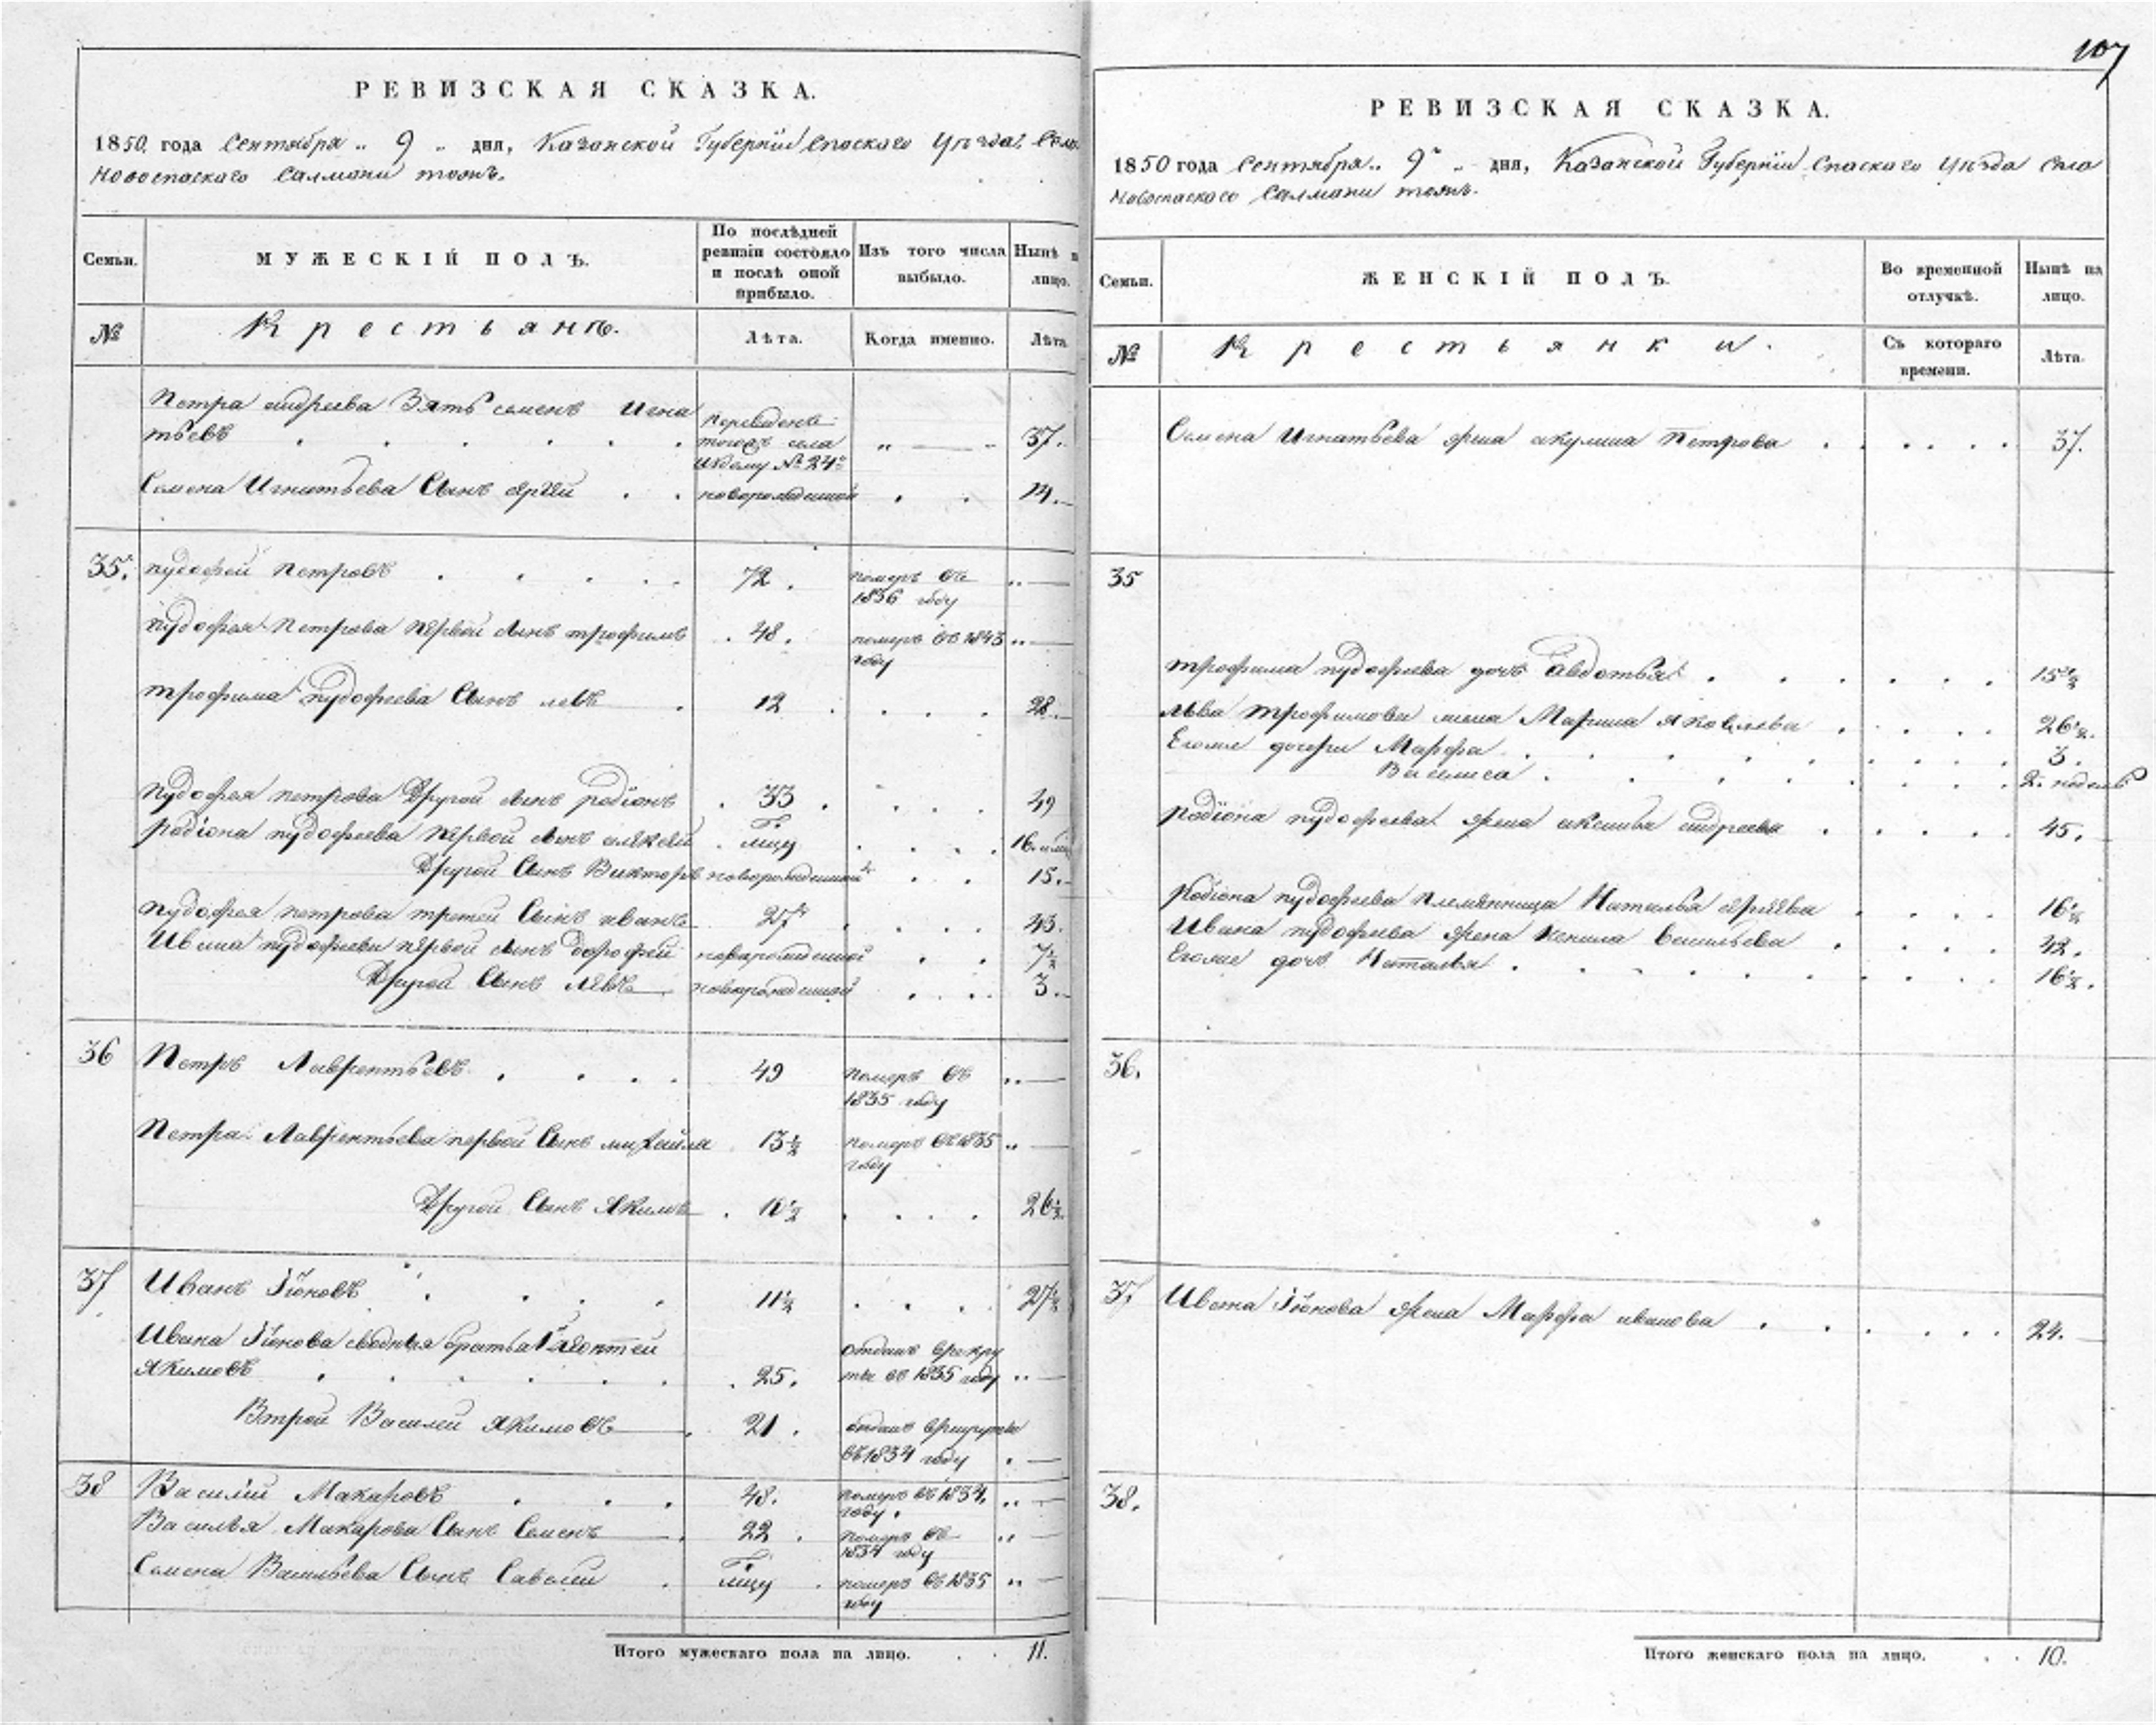 107
РЕВИЗСКАЯ СКАЗКА.
1850 года Сентября „ 9 „ дня, Казанской Губерніи Спаскаго Уѣзда, Села
Новоспаскаго Салмани тожъ.
Семьи.
МУЖЕСКІЙ ПОЛЪ.
По послѣдней
ревизіи состояло
и послѣ оной
прибыло.
Изъ того числа
выбыло.
Нынѣ н
лицо.
№
Крестьянъ.
Лѣта.
Когда именно.
Лѣта
Петра андреева Зять семенъ Игна
тьевъ
тогожъ села
№ 24
37.
Семена Игнатьева Сынъ новорожденной
14.
35. пудофей петровъ 72. померъ въ
1836 году
пудофея Петрова первой сынъ трофимъ 48. померъ въ 1843
году
трофима пудофеева Сынъ левъ 12 28.
пудофея петрова Другой сынъ родіонъ 33. 49
родіона пудофеева первой сынъ алексей мцу 16.
Другой Сынъ Викторъ новорожденной 15.
пудофея петрова третей Сынъ иванъ 27 43.
Ивана пудофеева первой сынъ дорофей новорожденной 7½
Другой Сынъ левъ новорожденной 3.
36 Петръ Лаврентьевъ 49 померъ въ
1835 году
Петра Лаврентьева первой Сынъ михайла 13½ померъ въ 1835
году
Другой Сынъ Якимъ 10½ 26½
37 Иванъ 11½ 27½
Ивана братья
Якимовъ 25. отданъ врекру
ты въ 1835 году
Втрой Василей якимовъ 21. отданъ
въ 1834 году
38 Василій Макаровъ 48. померъ въ 1834.
году.
Василья Макарова Сынъ Семенъ 22. померъ въ
1834 году
Семена Васильева Сынъ Савелей мцу померъ въ 1835
году
Итого мужескаго пола на лицо. 11.
РЕВИЗСКАЯ СКАЗКА.
1850 года Сентября „ 9 „ дня, Казанской Губерніи Спаскаго Уѣзда Села
Новоспаскаго Салмани тожъ.
Семьи.
ЖЕНСКІЙ ПОЛЪ.
Во временной
отлучкѣ.
Нынѣ на
лицо.
№
Крестьянки.
Съ котораго
времени.
Лѣта.
Семена Игнатьева жена акулина Петрова 37.
35
трофима пудофеева дочь авдотья 15½
льва трофимова жена Марина яковлева 26½.
Егоже дочери Марфа 3.
Василиса 2. недель
Родіона пудофеева жена аксинья андреева 45.
Родіона пудофеева племянница Наталья 16½
Ивана пудофеева жена васильева 42.
Егоже дочь Наталья 16½.
36.
37. Ивана жена Марфа иванова 24.
38.
Итого женскаго пола на лицо. 10.